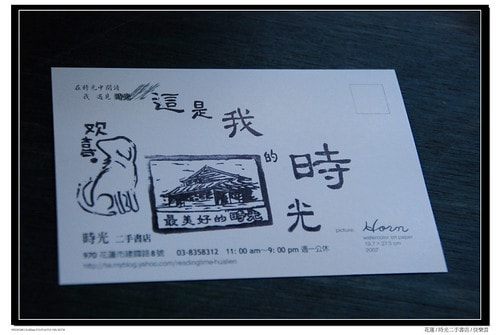 在時光中閱讀
我 遇見 時光
這是
我
的
時
光
欢
喜
最美好的時光
時光 二手書店
970 花蓮市建國路8號 03-8358312 11:00 am~9:00 pm 週一公休
http://tw.myblog.yahoo.com/readingtime-hualien
picture
Horn
watercolor on paper
2002
花蓮/時光二手書店/很樂雲